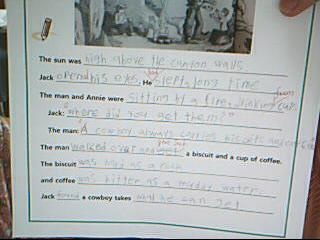 The sun was high above the canyon walls
Jack opend his eyes. He had slept a long time
The man and Annie were sitting by a fire, drinking from cups
Jack: "Where did you get them?"
The man: A cowboy always carries biscuits and coffee
The man walked over and gave Jack a biscuit and a cup of coffee.
The biscuit was hard as a rock
and coffee was bitter as a muddy water.
Jack found a cowboy takes what he can get